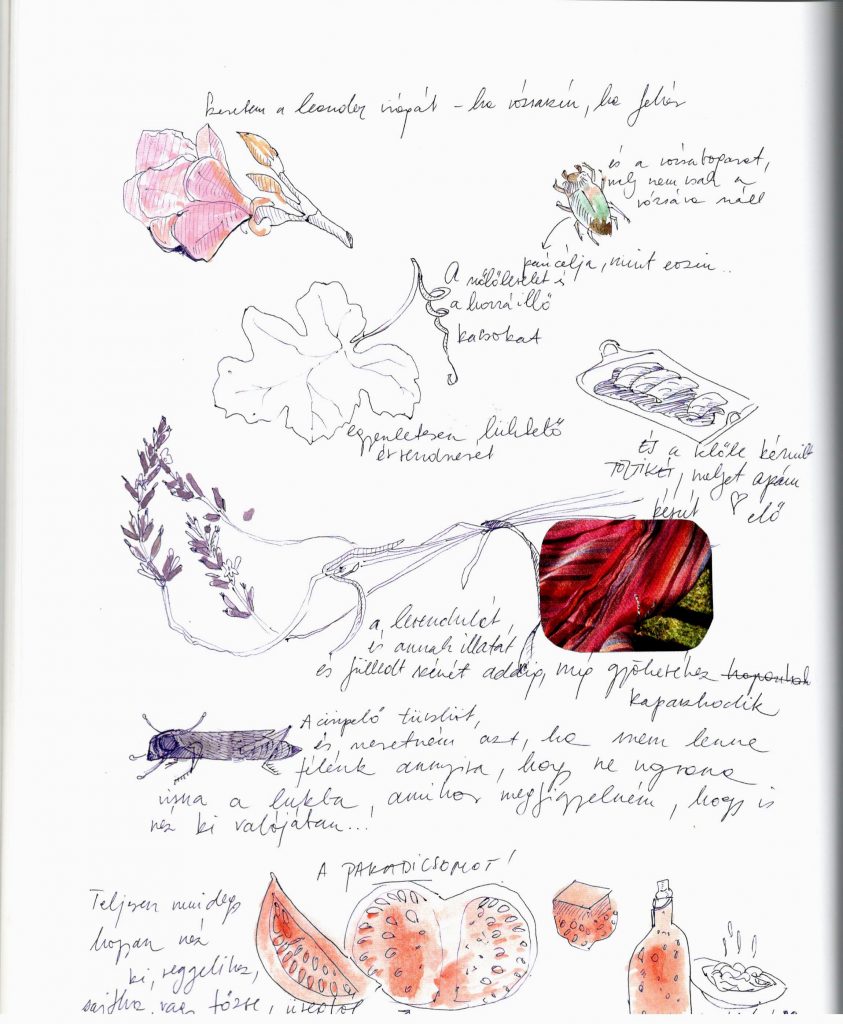 Szeretem a leander virágát – ha rózsaszín, ha fehér
és a rózsabogarat,
mely nem csak a
rózsára száll
páncélja, mint eozin..
A szőlőlevelet és
a hozzá illő
kacsokat
egyenletesen lüktető
érrendszerét
És a belőle készült
TÖLTIKÉT, melyet apám
készít ♡ elő
a levendulát,
és annak illatát
és fülledt színét addig, míg gyökeréhez kapaszkodik
A cirpelő tücsköt,
és szeretném azt, ha nem lenne
félénk annyira, hogy ne ugrana
vissza a lukba, amikor megfigyelném, hogy is
néz ki valójában...!
A PARADICSOMOT!
Teljesen mindegy
hogyan néz
ki, reggelihez,
sajtba, vagy főzve,